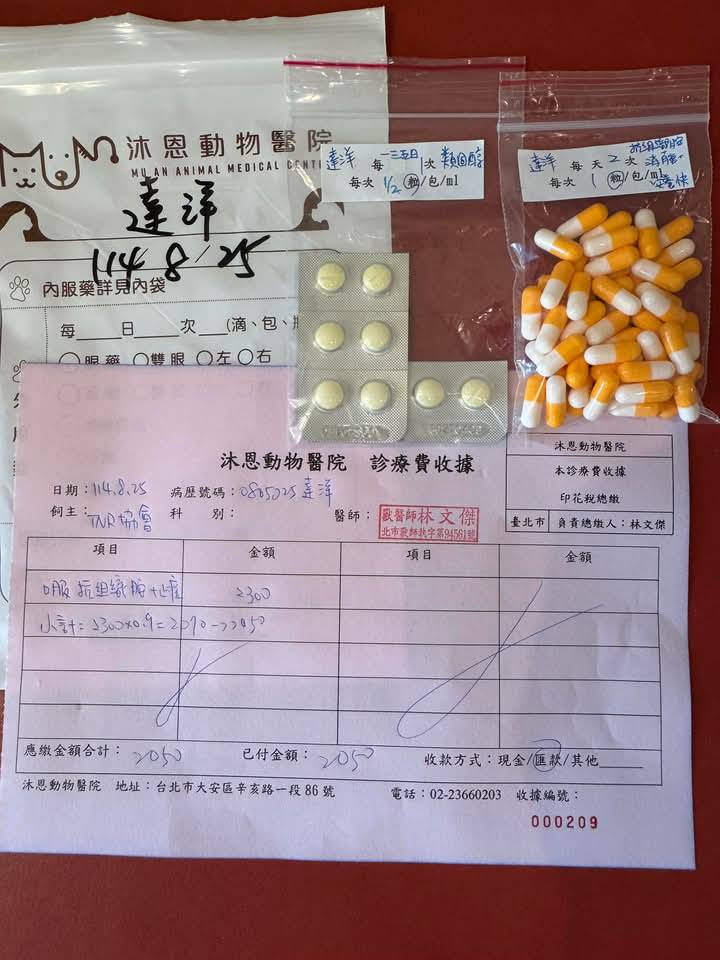 沐恩動物醫院
MU AN ANIMAL MEDICAL CENT
達洋
114.8/25
內服藥詳見內袋
每___日___次___(滴、包、
眼藥 雙眼 左 右
達洋 每 一三五日 1 次 類固醇
每次 1/2 粒/包/ml
達洋 每 天 2 次
每次 1 粒/包/ml
沐恩動物醫院 診療費收據
沐恩動物醫院
本診療費收據
印花稅總繳
臺北市 負責總繳人:林文傑
日期:114.8.25 病歷號碼:0805025 達洋
飼主:TNR協會 科 別: 醫師:
獸醫師林文傑
北市獸師執字第94561號
項目 金額 項目 金額
口服 抗組織胺 2300
小計=2300×0.9=2070→2050
應繳金額合計:2050 已付金額:2050 收款方式:現金/匯款/其他
沐恩動物醫院 地址:台北市大安區辛亥路一段86號 電話:02-23660203 收據編號:
000209